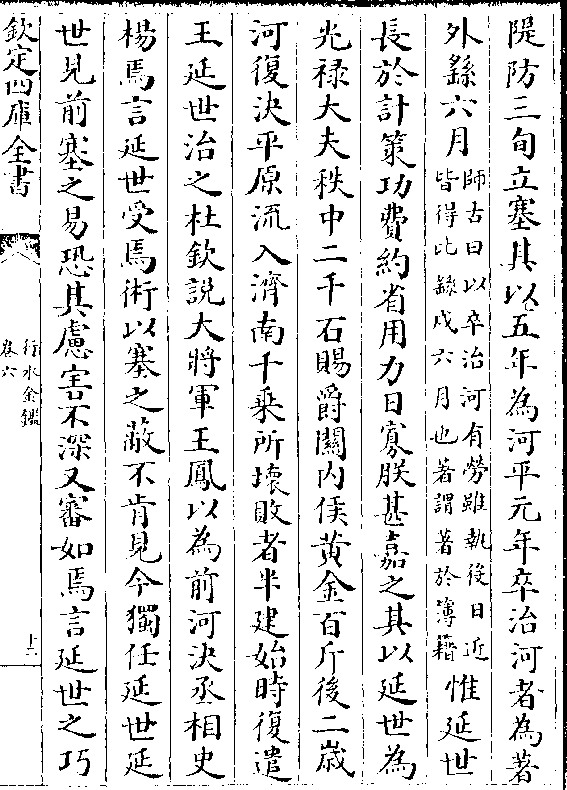 隄防三旬立塞其以五年為河平元年卒治河者為著
外繇六月師古曰以卒治河有勞雖執後日近皆得比繇戍六月也著謂著於簿籍惟延世
長於計策功費約省用力日寡朕甚嘉之其以延世為
光禄大夫秩中二千石賜爵關内侯黄金百斤後二歲
河復決平原流入濟南千乗所壊敗者半建始時復遣
王延世治之杜欽説大將軍王鳳以為前河決丞相史
楊焉言延世受焉術以塞之蔽不肯見今獨任延世延
世見前塞之易恐其慮害不深又審如焉言延世之巧
欽定四庫全書
行水金鑑
卷六
十一